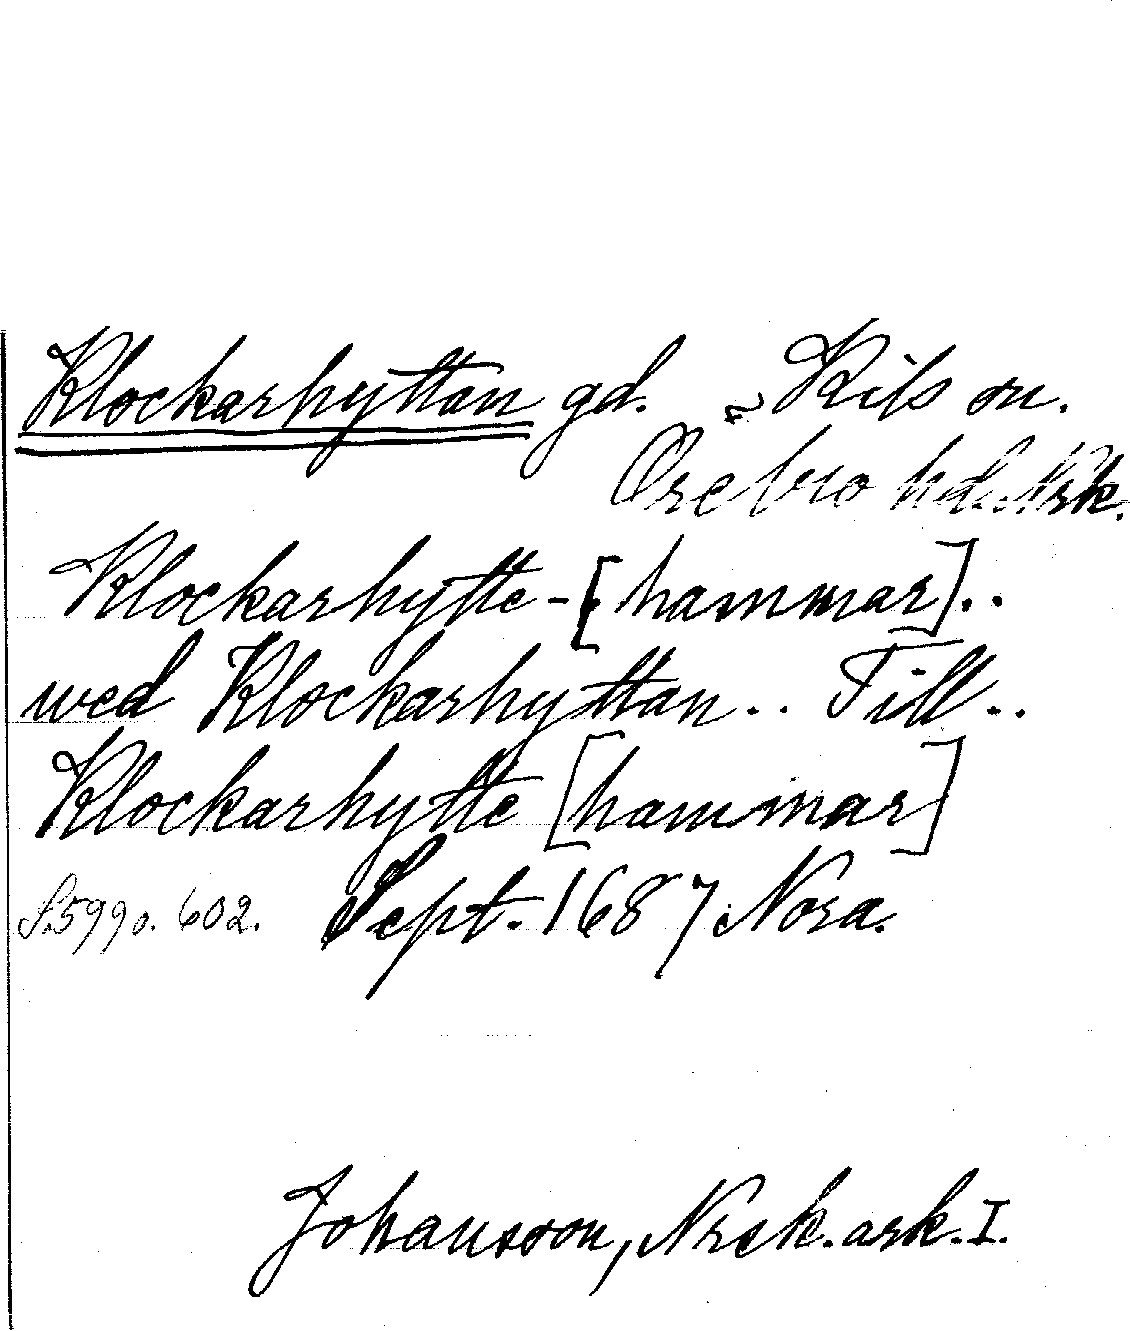 Klockarhyttan gd. ~ Kils sn.
Örebro hd. Nrk.
Klockarhytte-[hammar]..
wed Klockarhyttan.. Till..
Klockarhytte [hammar]
S. 599 o. 602. Sept. 1687 Nora.
Johansson, Nrck. ark. I.